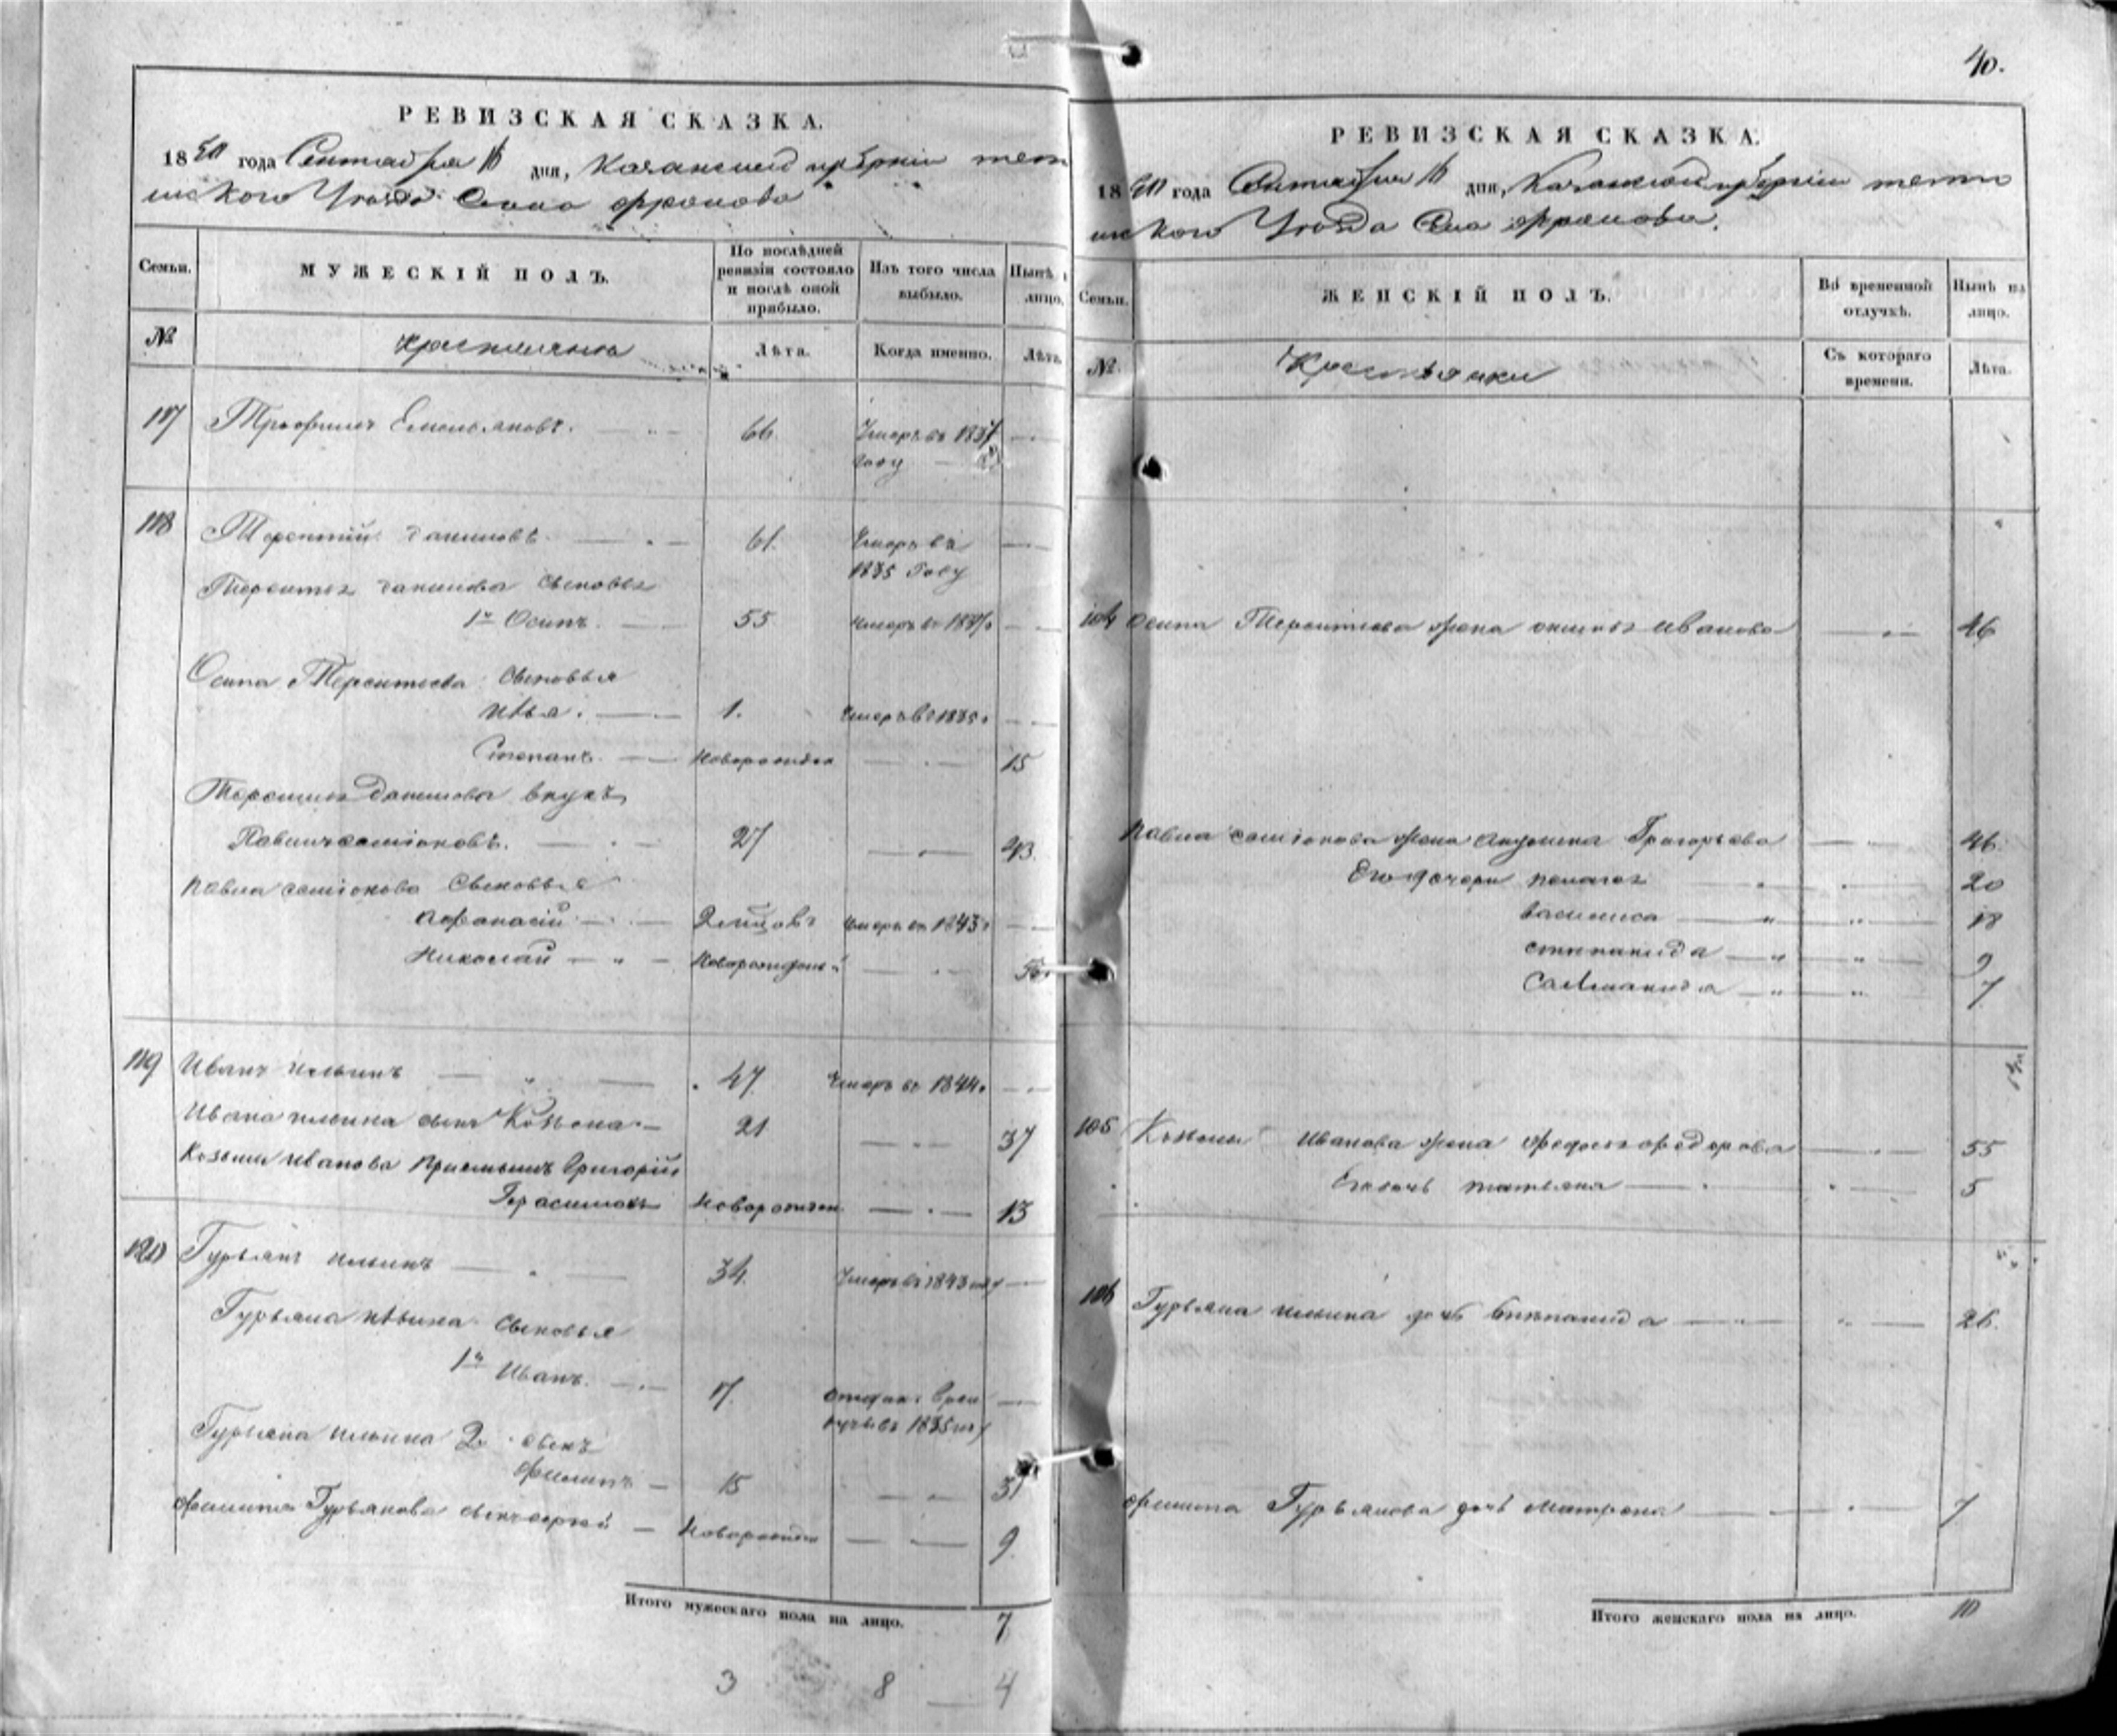 40.
РЕВИЗСКАЯ СКАЗКА.
1850 года Сентября 16 дня, Казанской губерніи тетю
шского Уѣзда Села Фролова
Семьи. МУЖЕСКІЙ ПОЛЪ. По послѣдней ревизіи состояло и послѣ оной прибыло. Изъ того числа выбыло. Нынѣ лицо.
№ Крестьяна Лѣта. Когда именно. Лѣта.
117 Трофимъ Емельяновъ. 66. Умеръ въ 1837
Году
118 Терентій Даниловъ 61. Умеръ въ
1835 Году
Терентья Данилова Сыновья
1й Осипъ. 55 Умеръ въ 1837
Осипа Терентьева Сыновья
Илья. 1. Умеръ въ 1835
Степанъ. Новорожден 15
Терентья Данилова внукъ
Павилъ Семіоновъ. 27 43.
Павла Семіонова Сыновья
Афанасій Умеръ въ 1843
Николай Новорожденый
119 Иванъ Ильинъ 47. Умеръ въ 1844
Ивана Ильина сынъ Козьма 21 37
Козьмы Иванова Пріемышъ Григорій
Герасимовъ Новорожден 13
120 Гурьянъ Ильинъ 34. Умеръ въ 1843
Гурьяна Ильина Сыновья
1й Иванъ. 17. отдан въ рек
руты въ 1835
Гурьяна Ильина 2й сынъ
Филипъ 15 31
Филипа Гурьянова сынъ Сергей Новорожден 9.
Итого мужескаго пола на лицо. 7
3 8 4
РЕВИЗСКАЯ СКАЗКА.
1850 года Сентября 16 дня, Казанской губерніи тетю
шского Уѣзда Села Фролова.
Семьи. ЖЕНСКІЙ ПОЛЪ. Во временной отлучкѣ. Нынѣ на лицо.
№. Крестьянки Съ котораго времени. Лѣта.
104 Осипа Терентьева жена Иванова 46
Павла Семіонова жена Акулина Григорьева 46.
Его дочери Пелагея 20
Василиса 18
Степанида 9
7
105 Козьмы Иванова жена Федосья Федорова 55
Его дочь Татьяна 5
106 Гурьяна Ильина дочь Степанида 26.
Филипа Гурьянова дочь Матрена 7
Итого женскаго пола на лицо. 10